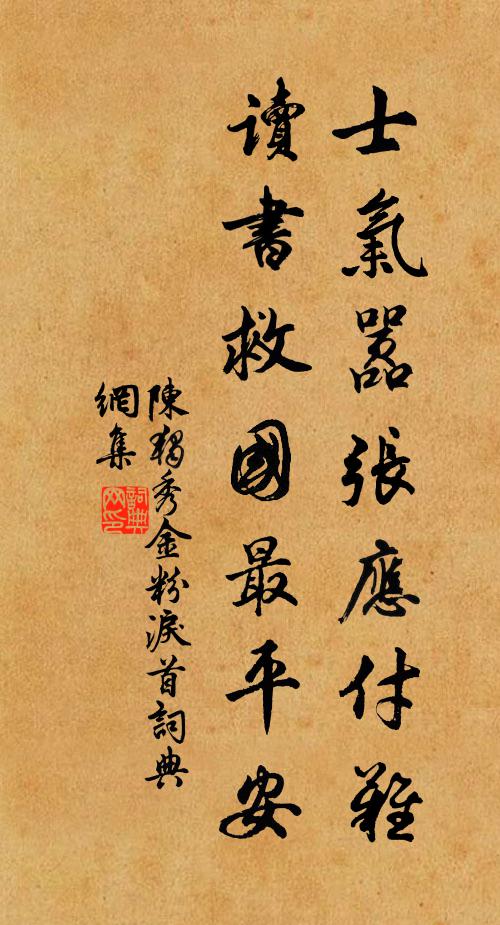 士氣囂張應付難
讀書救國最平安
陳獨秀金粉淚首詞典
網集
詞典網印